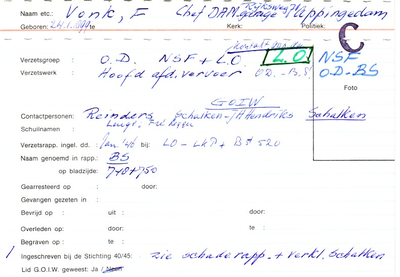 Naam etc.: Vonk, F Chef DAM garage Appingedam
Geboren: 24.1.1899 Kerk: Politiek:
C
Verzetsgroep : O.D. NSF + L.O. L.O. NSF
Verzetswerk : Hoofd afd. vervoer O.D. - B.S. O.D-BS
Foto
GOIW
Contactpersonen: Reinders Schalken - JA Hendriks Schalken
Schuilnamen :
Verzetsrapp. ingel. dd.: Jan '46 bij: LO - LKP + BS 520
Naam genoemd in rapp.: BS
op bladzijde: 748+750
Gearresteerd op : door:
Gevangen gezeten in :
Bevrijd op : uit : door:
Overleden op: : door: te :
Begraven op : te :
1 Ingeschreven bij de Stichting 40/45: zie schaderapp. + verkl. Schalken
Lid G.O.I.W. geweest: Ja / Neen